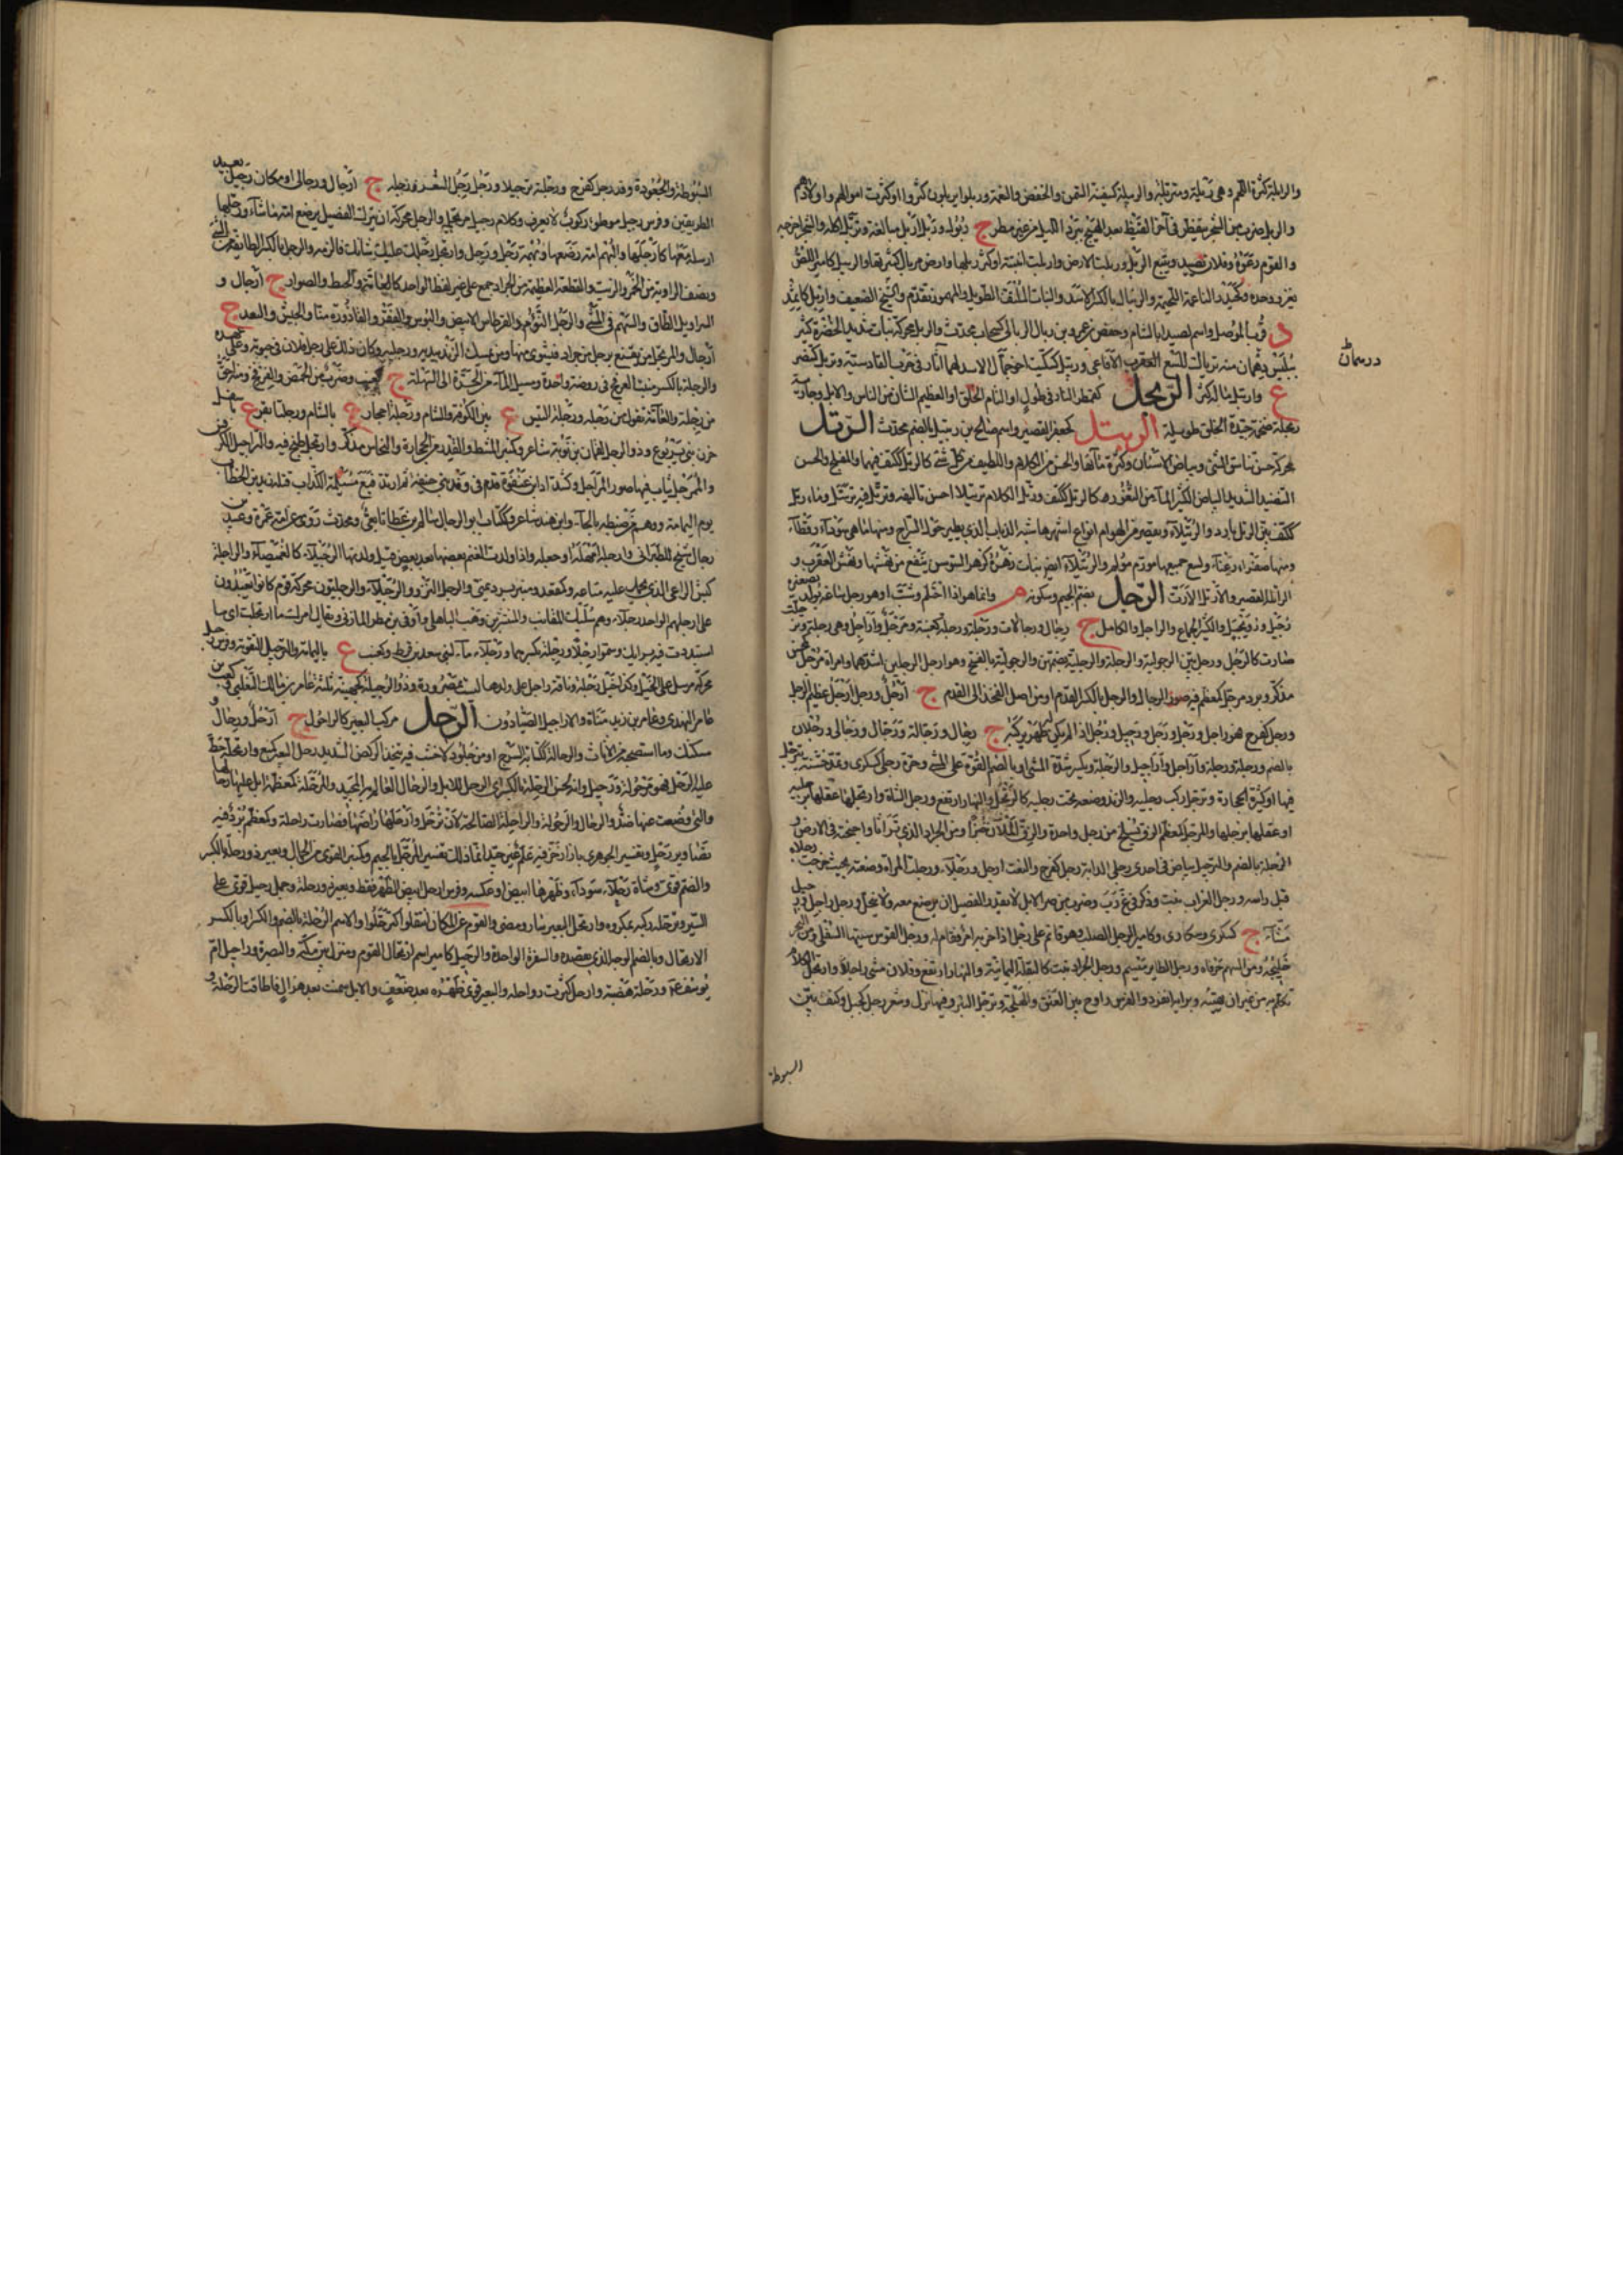 والربلة كثرة اللحم وهي ربلة ومتربلة والربيلة كسفينة السمن والخفض والنعمة وربلوا يربلون كثروا او كثرت اموالهم واولادهم
والربل ضرب من الشجر يتفطر في آخر القيظ بعد الهيج ببرد الليل من غير مطر ج ربول وربل اربل مبالغة وتربل اكله والشجر اخرجه
والقوم رعوه وفلان تصيد وتتبع الربل وربلت الارض واربلت انبتته او كثر ربلها وارض مربال كثيرتها والربيل كامير اللص
يغزو وحده والناعمة اللحيمة والريبال بالكسر الاسد والنبات الملتف الطويل والمهموز تقدم والشيخ الضعيف واربل كاثمد
د قرب الموصل واسم لصيدا بالشام وحفص بن عمرو بن ربال الربالي كسحاب محدث والربل محركة نبات شديد الخضرة كثير
ببلبيس درهمان منه ترياق للسع العقرب الافاعي وربيل
ع واربيل مثال كثر الربحل كقمطر التار في طول او التام الخلق او العظيم الشان من الناس والابل وجارية
ربحلة ضخمة جيدة الخلق طويلة الربتل كجعفر القصير واسم صالح بن رتبيل بالضم محدث الرتل
محركة حسن تناسق الشيء وبياض الاسنان وكثرة مائها والحسن من الكلام والطيب من كل شيء كالرتل ككتف فيهما والمفلج والحسن
التنضيد الشديد البياض الكثير الماء من الثغور كالرتل ككتف ورتل الكلام ترتيلا احسن تاليفه وترتل فيه ترسل وماء رتل
ككتف بين الرتل بارد والرتيلاء ويقصر من الهوام انواع اشهرها شبه الذباب الذي يطير حول السراج ومنها ما هي سوداء رقطاء
ومنها صفراء زغباء ولسع جميعها مورم مؤلم والرتيلاء ايضا نبات زهره كزهر السوسن ينفع من نهشها ونهش العقرب و
الراتلة القصير والارتل الارت الرجل بضم الجيم وسكونه م وانما هو اذا احتلم وشب او هو رجل ساعة يولد تصغيره
رجيل ورويجل والكثير الجماع والراجل والكامل ج رجال ورجالات ورجلة ورجلة كعنبة ومرجل واراجل وهي رجلة وترجلت
صارت كالرجل ورجل بين الرجولية والرجلة والرجلية بضمهن والرجولية بالفتح وهو ارجل الرجلين اشدهما وامراة مرجل كمحسن
مذكر وبرد مرجل كمعظم فيه صور الرجال والرجل بالكسر القدم او من اصل الفخذ الى القدم ج ارجل ورجل ارجل عظيم الرجل
ورجل كفرح فهو راجل ورجل ورجل ورجيل ورجل اذا لم يكن له ظهر يركبه ج رجال ورجالة ورجال ورجالى ورجلان
بالضم ورجلة ورجلة واراجل واراجيل والرجلة ويكسر شدة المشي او بالضم القوة على المشي وحرة رجلى كسكرى
فيها او كثيرة الحجارة وترجل ركب رجليه والزند وضعه تحت رجليه كارتجل والنهار ارتفع ورجل الشاة وارتجلها عقلها برجليه
او عقلها برجلها والمرجل كمعظم الزق يسلخ من رجل واحدة والزق الملآن خمرا ومن الجراد الذي ترى آثار اجنحته في الارض و
الرجلة بالضم والترجيل بياض في احدى رجلي الدابة رجل كفرح والنعت ارجل ورجلاء ورجلت المراة وضعته بحيث خرجت رجلاه
قبل راسه ورجل الغراب نبت وذكر في غ ر ب وضرب من صر الابل لا يقدر الفصيل ان يرضع معه ولا ينحل ورجل راجل ورجيل
مشاء ج كسكرى وسكارى وكامير الرجل الصلب وهو قائم على رجل اذا حزبه امر فقام له ورجل القوس سيتها السفلى ومن البحر
خليجه ومن السهم حرفاه ورجل الطائر ميسم ورجل الجراد نبت كالبقلة اليمانية والنهار ارتفع وفلان مشى راجلا وارتجل الكلام
تكلم به من غير ان يهيئه وبرايه انفرد والفرس راوح بين العنق والهملجة وترجل البئر وفيها نزل وشعر رجل كجبل وكتف بين
السبوطة
السبوطة والجعودة وقد رجل كفرح ورجلته ترجيلا ورجل رجل الشعر ورجله ج ارجال ورجالى ومكان رجيل بعيد
الطريقين وفرس رجيل موطوء ركوب لا يعرق وكلام رجيل مرتجل والرجل محركة ان يترك الفصيل يرضع امه ما شاء ورجلها
ارسله معها كارجلها والبهم امه رضعها وبهمة رجل ورجل وارتجل رجلك عليك شانك فالزمه والرجل بالكسر الطائفة من الشيء
ونصف الراوية من الخمر والزيت والقطعة العظيمة من الجراد جمع على غير لفظ الواحد كالعانة والخيط والصوار ج ارجال و
السراويل الطاق والسهم في الشيء والرجل النؤوم والقرطاس الابيض والبؤس والفقر والقاذورة منا والجيش والتقدم ج
ارجال والمرتجل من يقع برجل من جراد فيشوي منها ومن يمسك الزند بيديه ورجليه وكان ذلك على رجل فلان في حياته وعلى عهده
والرجلة بالكسر منبت العرفج في روضة واحدة ومسيل الماء من الحرة الى السهلة ج كعنب وضرب من الحمض والعرفج ومنه احمق
من رجلة والعامة تقول من رجله ورجلة التيس ع بين الكوفة والشام ورجلة احجار ع بالشام ورجلتا بقر ع باسفل
حزن بني يربوع وذو الرجل لقمان بن توبة شاعر وكمنبر المشط والقدر من الحجارة والنحاس مذكر وارتجل طبخ فيه والتراجيل الكرفس
والممرجل ثياب فيها صور المراجل وكشداد ابن عنفوة قدم في وفد بني حنيفة ثم ارتد فتبع مسيلمة الكذاب قتله زيد بن الخطاب
يوم اليمامة ووهم من ضبطه بالحاء وابن هند شاعر وككتاب ابو الرجال سالم بن عطاء تابعي ومحدث روى عن امه عمرة وعبيد بن
رجال شيخ للطبراني وارجله امهله او جعله راجلا واذا ولدت الغنم بعضها بعد بعض قيل ولدتها الرجيلاء كالغميصاء والراجلة
كبش الراعي الذي يحمل عليه متاعه وكمقعد ومنبر برد يمني والرجل النزو والرجيلاء والرجليون محركة قوم كانوا يعدون
على ارجلهم الواحد رجلي وهم سليك المقانب والمنتشر بن وهب الباهلي واوفى بن مطر المازني ويقال امرك ما ارتجلت اي ما
استبددت فيه برايك وسموا رجلا ورجلة بكسرهما ورجلاء ماء لبني سعد بن قرط وكعنب ع باليمامة والترجيل التقوية وفرس رجل
محركة مرسل على الخيل وكذا خيل رجل وناقة راجل على ولدها ليست بمصرورة وذو الرجيلة كجهينة ثلثة عامر بن مالك التغلبي وكعب بن
عامر النهدي وعامر بن زيد مناة والاراجيل الصيادون الرحل مركب البعير كالراحول ج ارحل ورحال و
مسكنك وما تستصحبه من الاثاث والرحالة ككتابة السرج او من جلود لا خشب فيه يتخذ للركض الشديد رحل البعير كمنع وارتحله حط
عليه الرحل فهو مرحول ورحيل وانه لحسن الرحلة بالكسر اي الرحل للابل والرحال العالم به المجيد والمرحلة كمعظمة ابل عليها رحالها
والتي وضعت عنها ضد والرحال والرحول والرحولة والراحلة الصالحة لان ترحل وارحلها راضها فصارت راحلة وكمعظم برد فيه
تصاوير رحل وتفسير الجوهري بازار خز فيه علم غير جيد انما ذلك تفسير المرجل بالجيم وكمنبر القوي من الجمال وبعير ذو رحلة بالكسر
والضم قوي وشاة رحلاء سوداء وظهرها ابيض او عكسه وفرس ارحل ابيض الظهر فقط وبعير ذو رحلة وجمل رحيل قوي على
السير وترحله ركبه بمكروه وارتحل البعير سار ومضى والقوم عن المكان انتقلوا كترحلوا والاسم الرحلة بالضم والكسر او بالكسر
الارتحال وبالضم الوجه الذي تقصده والسفرة الواحدة والرحيل كامير اسم ارتحال القوم ومنزل بين مكة والبصرة وراحيل ام
يوسف عم ورحلة هضبة وارحل كثرت رواحله والبعير قوي ظهره بعد ضعف والابل سمنت بعد هزال فاطاقت الرحلة و